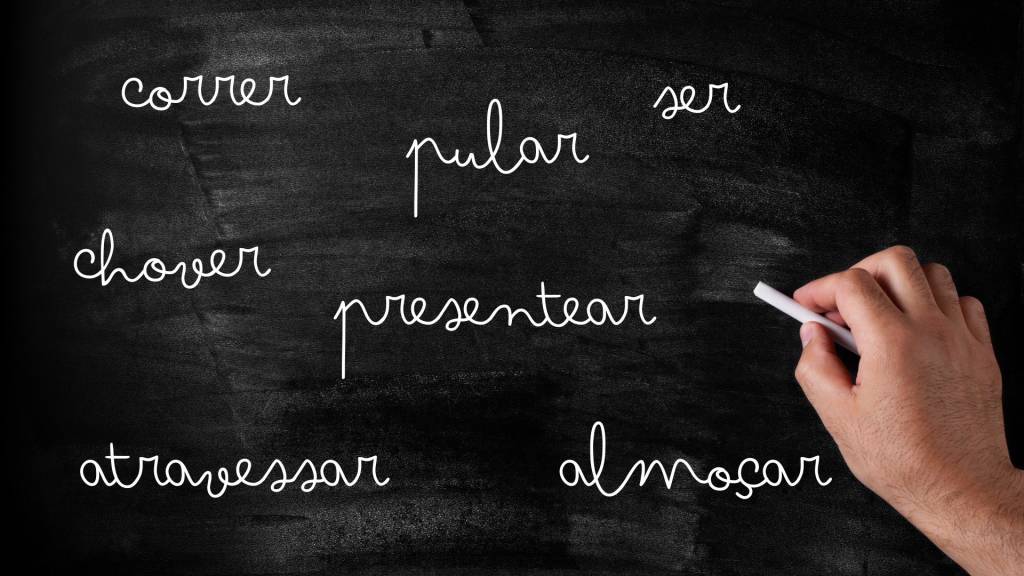 correr
ser
pular
chover
presentear
atravessar
almoçar